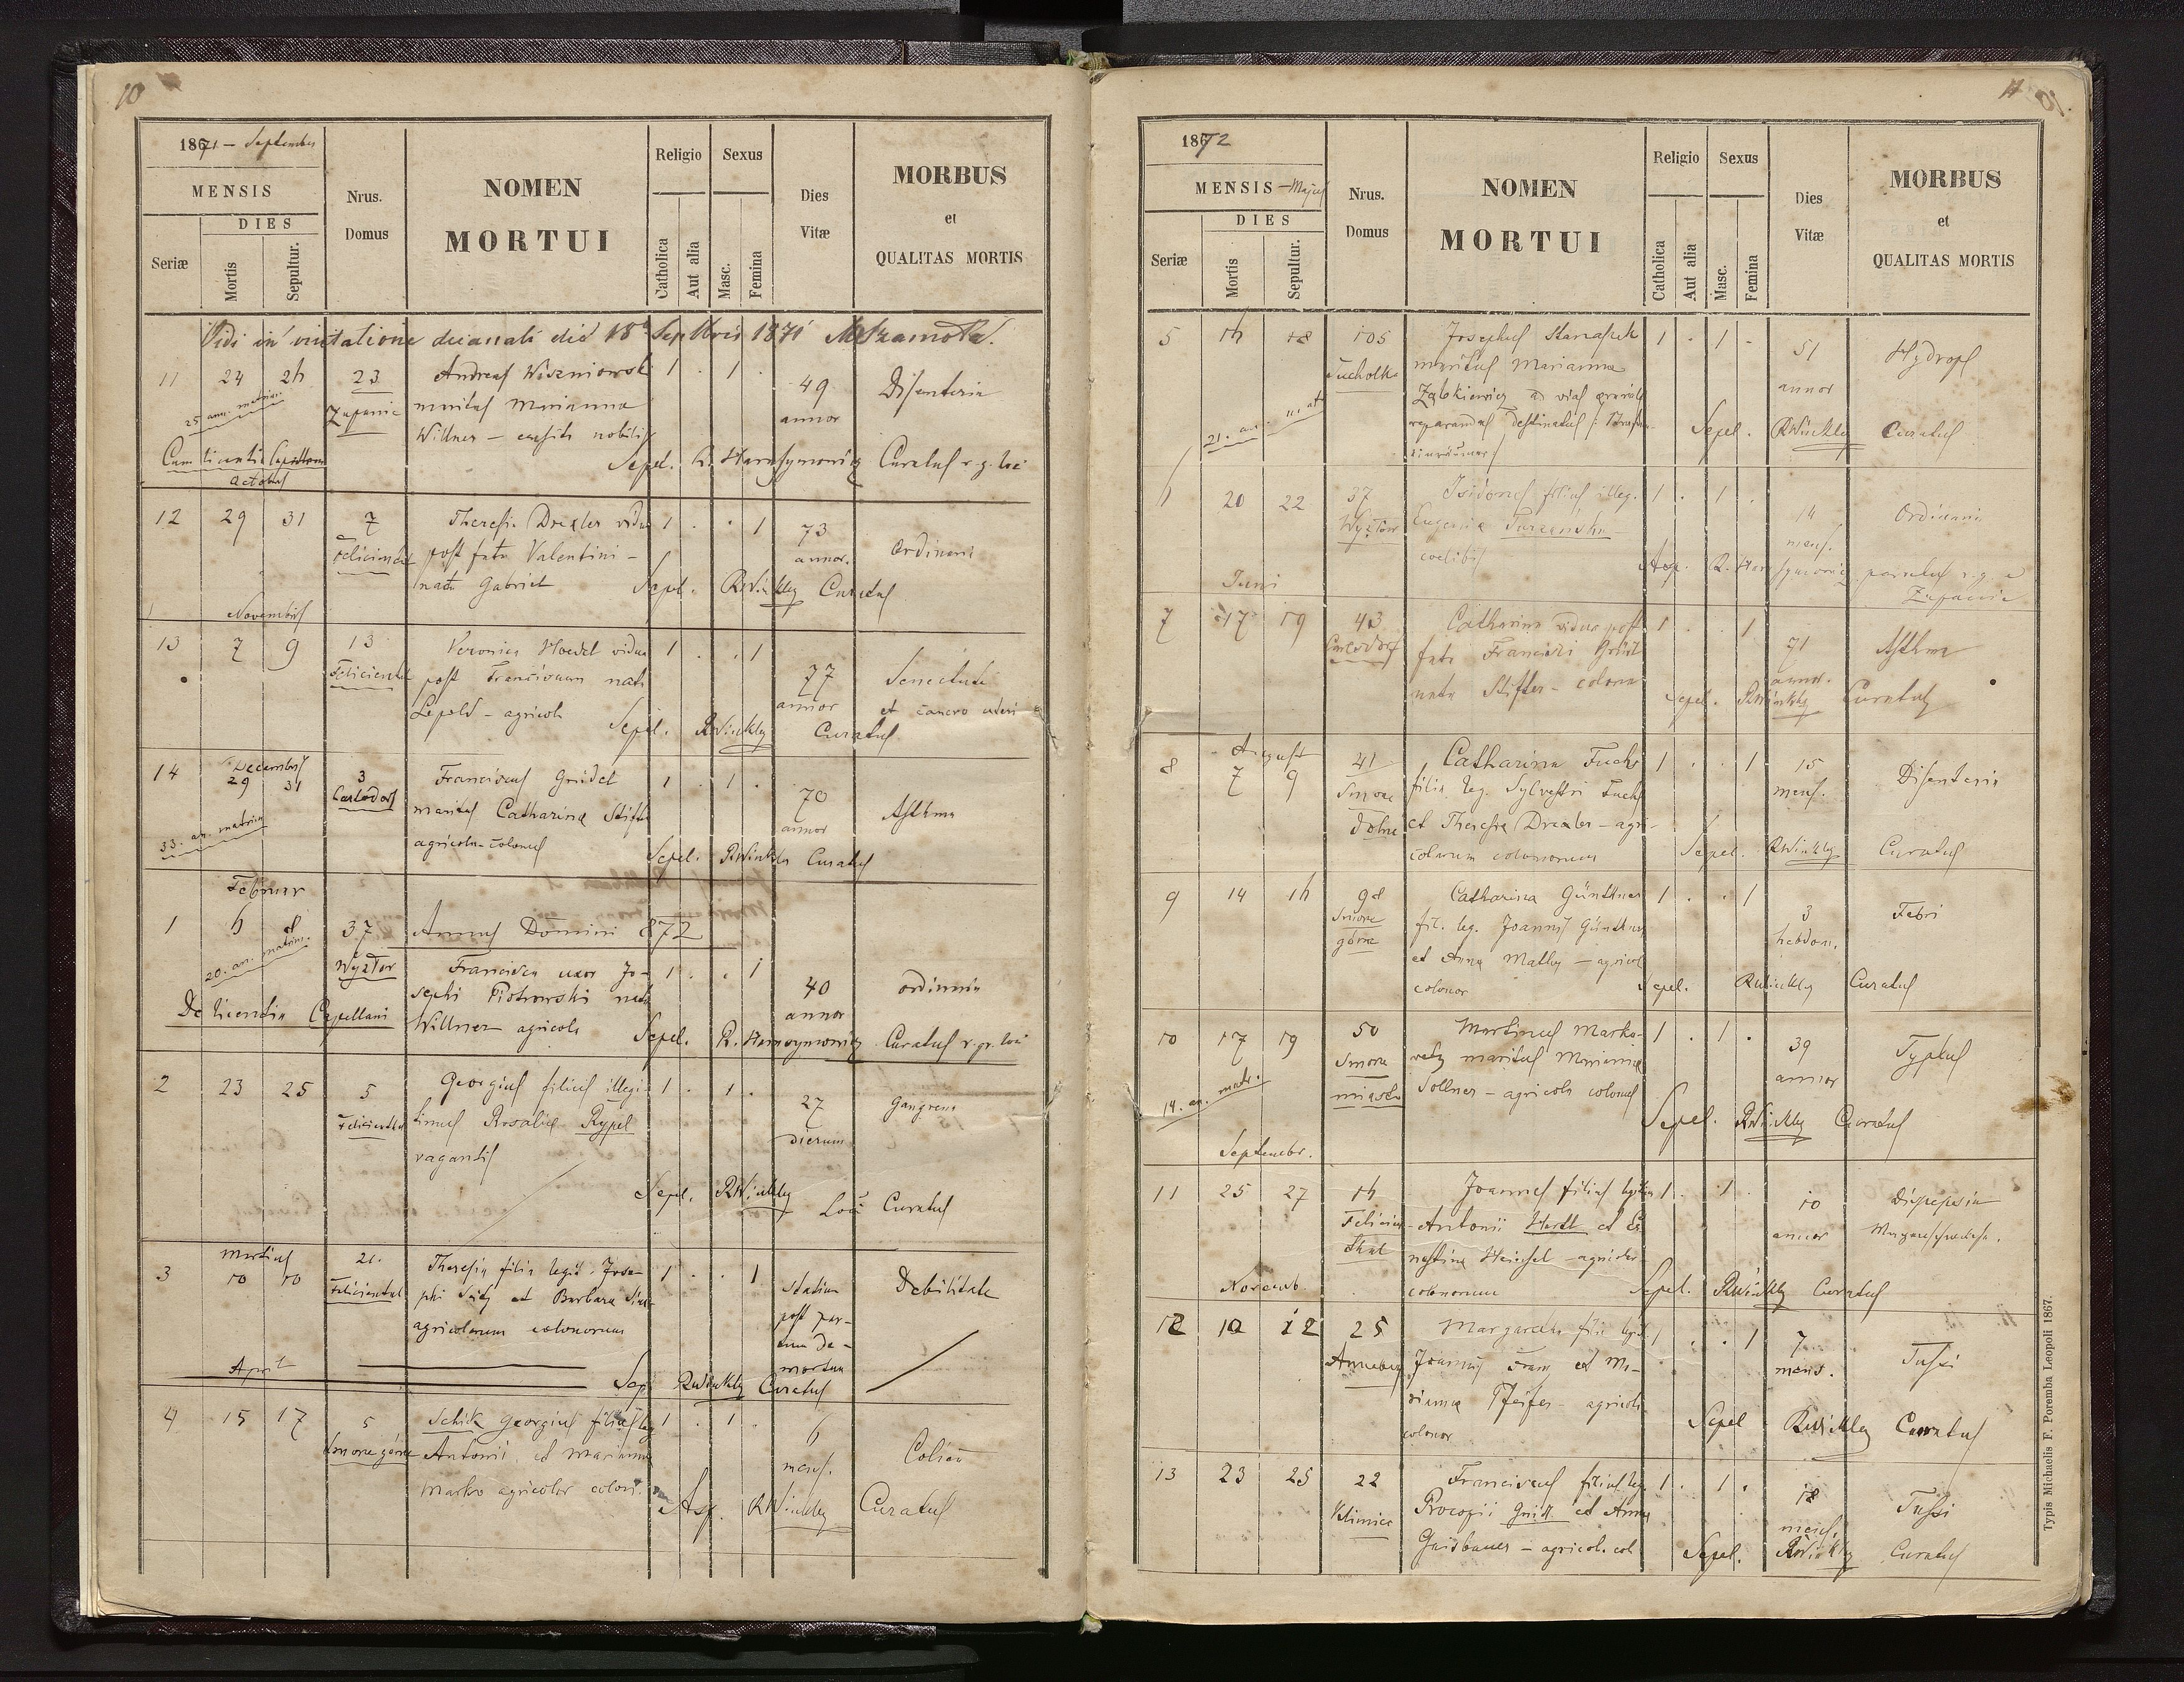 10
1871 - September
MENSIS
DIES
Seriæ
Mortis
Sepultur.
Nrus.
Domus
NOMEN
MORTUI
Religio
Catholica
Aut alia
Sexus
Masc.
Femina
Dies
Vitæ
MORBUS
et
QUALITAS MORTIS
Vidi in visitatione decanali die 18 Septbris 1871
11 24 26 23 Andreas Wiszniowski 1 . 1 . 49 Disenteria
25 ann. matrim. Zupanie maritus Marianna annor
Willner - nobilis
Cum licentia Capellani Sepel. R. Harasymowicz Curatus r. g. loci
October
12 29 31 7 Theresia Drexler vidua 1 . . 1 73 Ordinaria
Felicienthal post fata Valentini - annor.
nata Gabriel Sepel. RWinkler Curatus
Novembris
13 7 9 13 Veronica Hoedel vidua 1 . . 1 77 Senectute
Felicienthal post Franciscum nata annor et cancro uteri
Lepold - agricola Sepel. RWinkler Curatus
Decembris
14 29 31 3 Franciscus Gnidel 1 . 1 . 70 Asthma
Carlsdorf maritus Catharina Stifter annor
33. an. matrim agricola-colonus Sepel. RWinkler Curatus
Februar
1 6 8 37 Annus Domini 872
20. an. matrim. Wyżłow Francisca uxor Jo- 1 . . 1 40 ordinaria
sephi Piotrowski nata annor
De licentia Capellani Willner agricola Sepel. R. Harasymowicz Curatus r. gr. loci
2 23 25 5 Georgius filius illegi- 1 . 1 . 27 Gangrena
Felicienthal timus Rosaliæ Rypel dierum
vagantis
Sepel. RWinkler Loci Curatus
Martius
3 10 10 21. Theresia filia legit. Jose- 1 . . 1 Statim Debilitate
Felicienthal phi et Barbara post par-
agricolarum colonorum tum de-
mortua
April Sep RWinkler Curatus
4 15 17 5 Schik Georgius filius leg 1 . 1 . 6
Smorze górne Antonii et Marianna mens.
Marko agricolar colon. Asf. RWinkler Curatus
11
1872
MENSIS - Majus
DIES
Seriæ
Mortis
Sepultur.
Nrus.
Domus
NOMEN
MORTUI
Religio
Catholica
Aut alia
Sexus
Masc.
Femina
Dies
Vitæ
MORBUS
et
QUALITAS MORTIS
5 16 18 105 Josephus 1 . 1 . 51 Hydrops
Tucholka maritus Marianna annor
Ząbkiewicz ad vias
21. an. mat. reparandas destinatus Sepel. RWinkler Curatus
6 20 22 37 Isidorus filius illeg. 1 . 1 . 14 Ordinaria
Wyżłow Eugenia mens.
coelibis
Juni Zupanie
7 17 19 43 Catharina vidua post 1 . . 1 71 Asthma
Carlsdorf fata Francisci annor.
nata Stifter - colona Sepel. RWinkler Curatus
August
8 7 9 41 Catharina Fuchs 1 . . 1 15 Disenteria
Smorze filia leg. Sylvestri Fuchs mens.
dolne et Theresia Drexler - agri-
colarum colonorum Sepel. RWinkler Curatus
9 14 16 98 Catharina Günthner 1 . . 1 3 Febri
Smorze fil. leg. Joannis Günthner hebdom.
górne et Anna Mathy - agricol
colonor Sepel. RWinkler Curatus
10 17 19 50 Martinus Marko- 1 . 1 . 39 Typhus
Smorze maritus Marianna annor
14. an. matr. miasto Sollner - agricola colonus
Sepel. RWinkler Curatus
Septembr.
11 25 27 16 Joannes filius legitim 1 . 1 . 10 Dispepsia
Felicien- Antonii Hertl et Er- annor
thal nestina Heisel - agricolar
Novemb. colonorum Sepel. RWinkler Curatus
12 10 12 25 Margaretha filia legit 1 . . 1 7 Tussi
Annaberg Joannis Franz et Ma- mens.
rianna Pfeifer - agricola
colonor Sepel RWinkler Curatus
13 23 25 22 Franciscus filius leg. 1 . 1 . 18 Tussi
Klimiec Procopii Gnidl et Anna mens.
Gaisbauer - agricol. col Sepel. RWinkler Curatus
Typis Michaelis F. Poremba Leopoli 1867.